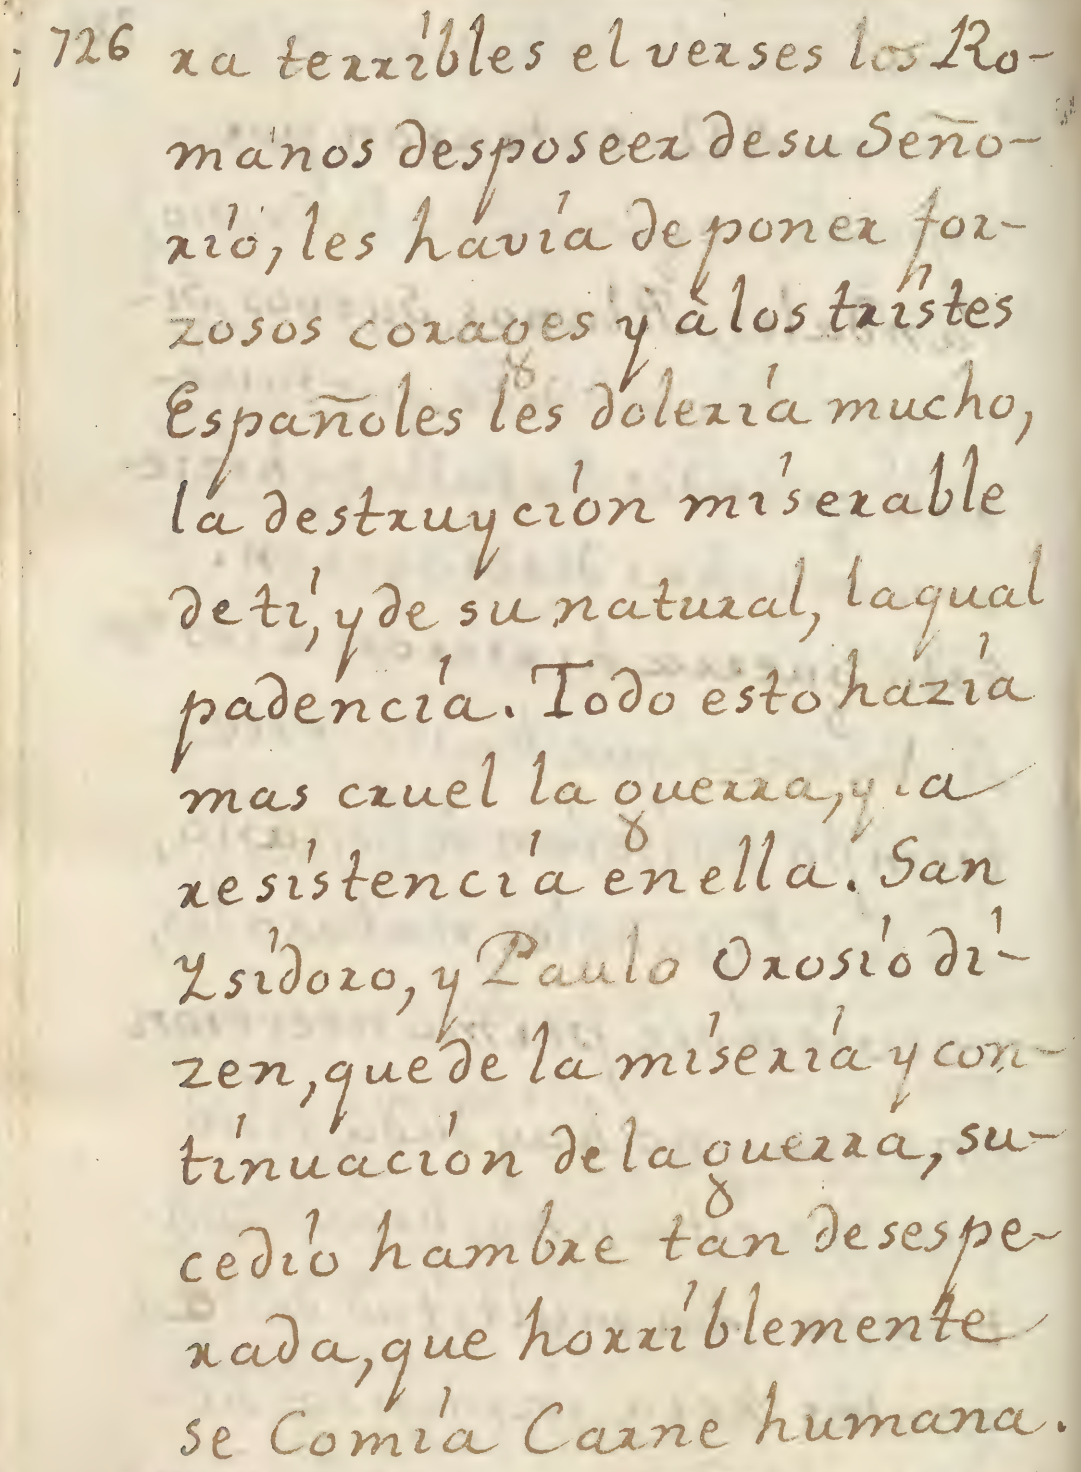 726 ra terribles el verses los Ro-
manos desposeer de su Seño-
río, les havía de poner for-
zosos corages y à los tristes
Españoles les dolería mucho,
la destruyción miserable
de tí, y de su natural, la qual
padencía. Todo esto hazía
mas cruel la guerra, y la
resistencía en ella. San
Ysídoro, y Paulo Orosío dí-
zen, que de la misería y con-
tinuación de la guerra, su-
cedió hambre tan desespe-
rada, que horríblemente
se Comía Carne humana.